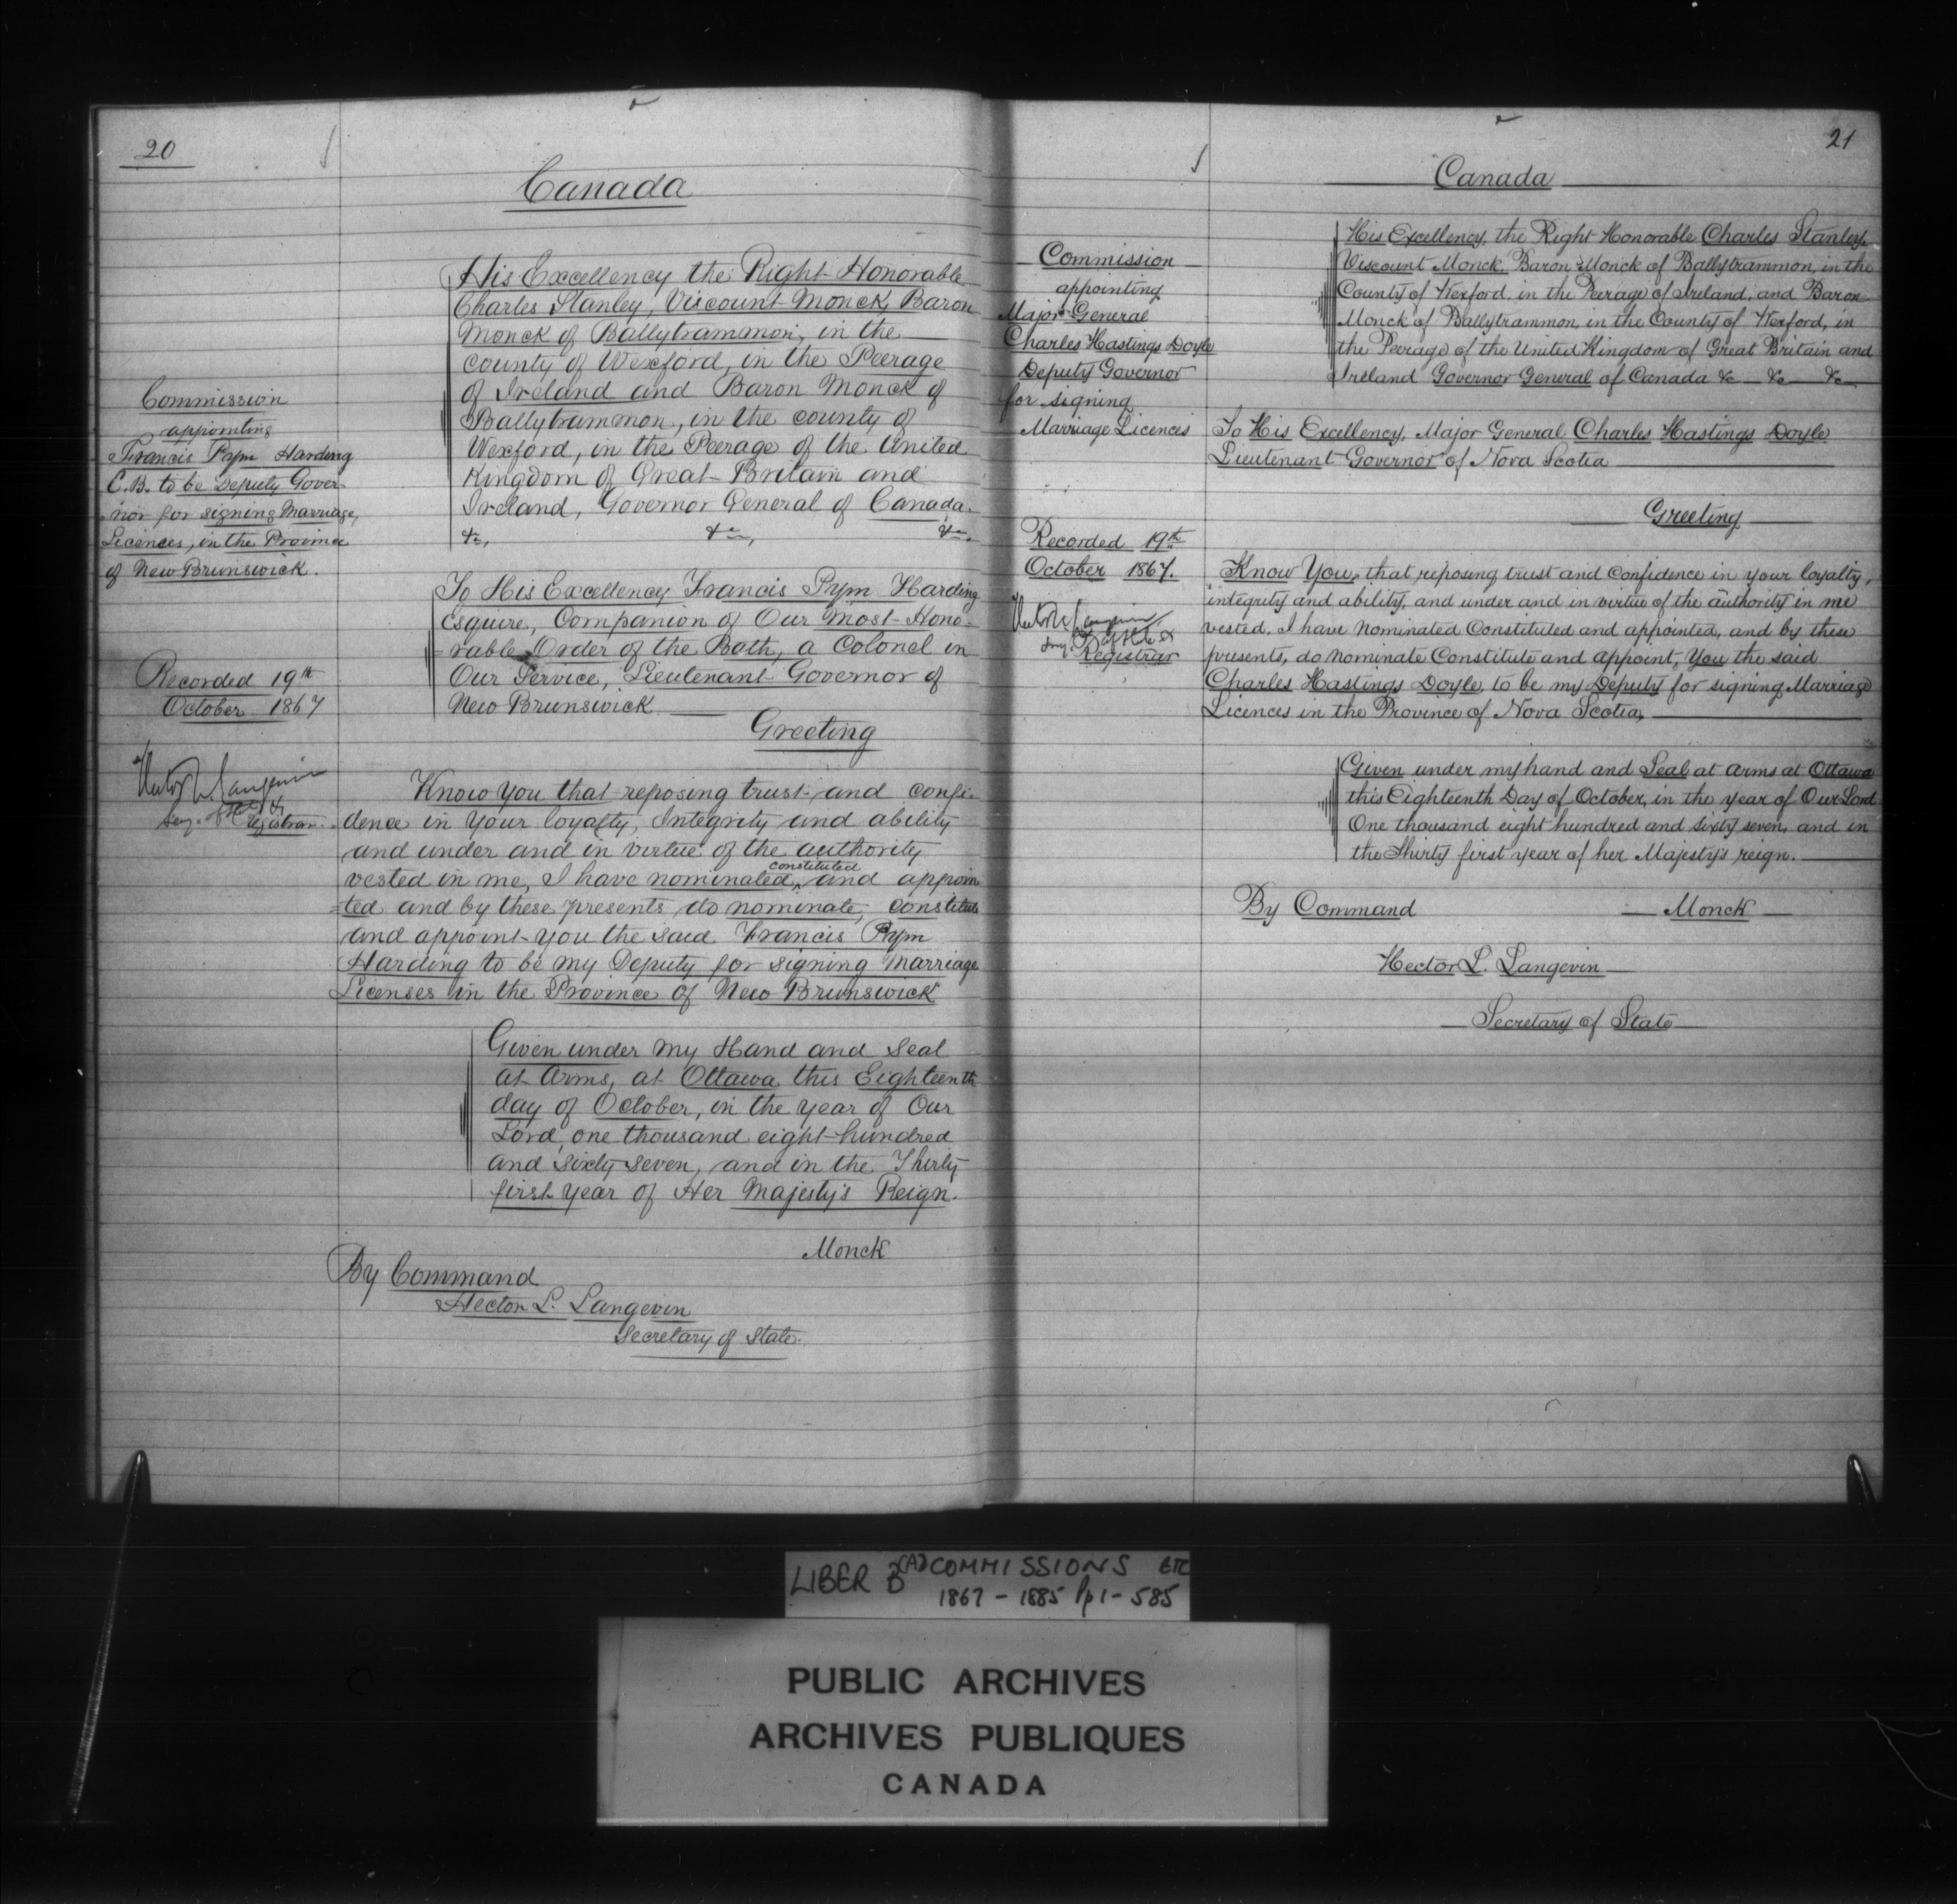 20
Canada
Commission
appointing
Francis Pym Harding
C.B. to be Deputy Gover-
nor for signing Marriage
Licences, in the Province
of New Brunswick.
Recorded 19th
October 1867
Hector L. Langevin
Registrar
His Excellency the Right Honorable
Charles Stanley, Viscount Monck, Baron
Monck of Ballytrammon, in the
county of Wexford, in the Peerage
of Ireland and Baron Monck of
Ballytrammon, in the county of
Wexford, in the Peerage of the United
Kingdom of Great Britain and
Ireland, Governor General of Canada.
&c, &c, &c.
To His Excellency Francis Pym Harding
Esquire, Companion of Our Most Hono-
rable Order of the Bath, a Colonel in
Our Service, Lieutenant Governor of
New Brunswick
Greeting
Know you that reposing trust and confi-
dence in your loyalty, Integrity and ability
and under and in virtue of the authority
vested in me, I have nominated, constituted and appoin
=ted and by these presents do nominate, constitute
and appoint you the said Francis Pym
Harding to be my Deputy for signing marriage
Licenses in the Province of New Brunswick
Given under my Hand and Seal
at Arms, at Ottawa this Eighteenth
day of October, in the year of Our
Lord, one thousand eight hundred
and sixty seven, and in the Thirty
first year of Her Majesty's Reign.
Monck
By Command
Hector L. Langevin
Secretary of State.
21
Canada
Commission
appointing
Major General
Charles Hastings Doyle
Deputy Governor
for signing
Marriage Licences
Recorded 19th
October 1867.
Hector L. Langevin
Registrar
His Excellency, the Right Honorable Charles Stanley
Viscount Monck, Baron Monck of Ballytrammon, in the
County of Wexford, in the Peerage of Ireland, and Baron
Monck of Ballytrammon, in the County of Wexford, in
the Peerage of the United Kingdom of Great Britain and
Ireland Governor General of Canada &c &c &c
To His Excellency, Major General Charles Hastings Doyle
Lieutenant Governor of Nova Scotia
Greeting
Know You, that reposing trust and confidence in your loyalty,
integrity and ability, and under and in virtue of the authority in me
vested, I have nominated Constituted and appointed, and by these
presents, do nominate Constitute and appoint, You the said
Charles Hastings Doyle, to be my Deputy for signing Marriage
Licences in the Province of Nova Scotia,
Given under my hand and Seal at arms at Ottawa
this Eighteenth Day of October, in the year of Our Lord
One thousand eight hundred and sixty seven, and in
the Thirty first year of her Majesty's reign.
By Command Monck
Hector L. Langevin
Secretary of State
LIBER B (A) COMMISSIONS ETC
1867 - 1885 Pp 1 - 585
PUBLIC ARCHIVES
ARCHIVES PUBLIQUES
CANADA